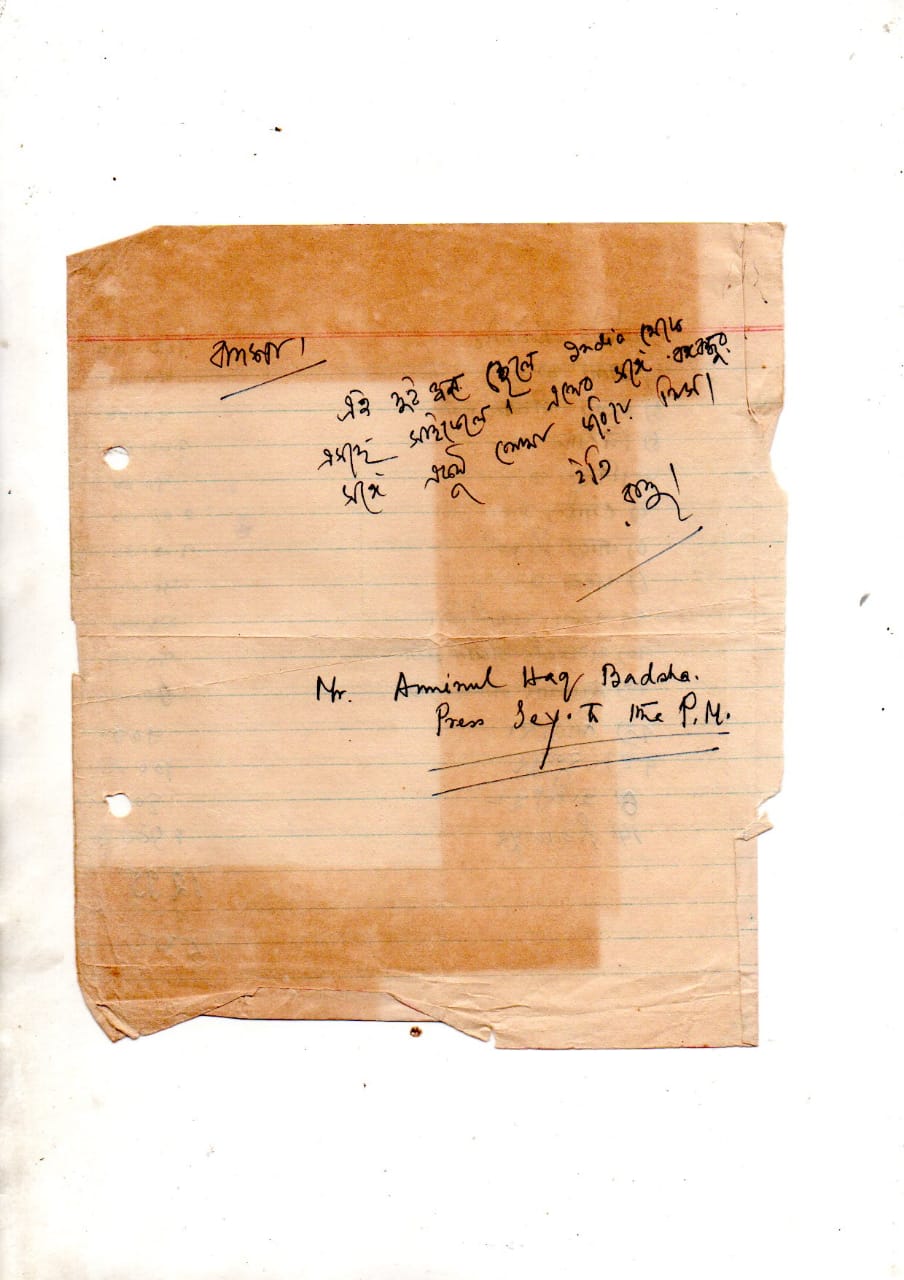 বাদশা।
এই দুই জন ছেলে India থেকে
এসেছে সাইকেলে। এদের সঙ্গে বঙ্গবন্ধুর
সঙ্গে একটু দেখা করিয়ে দিস।
ইতি
Mr. Aminul Haq Badsha.
Press Secy. to the P.M.